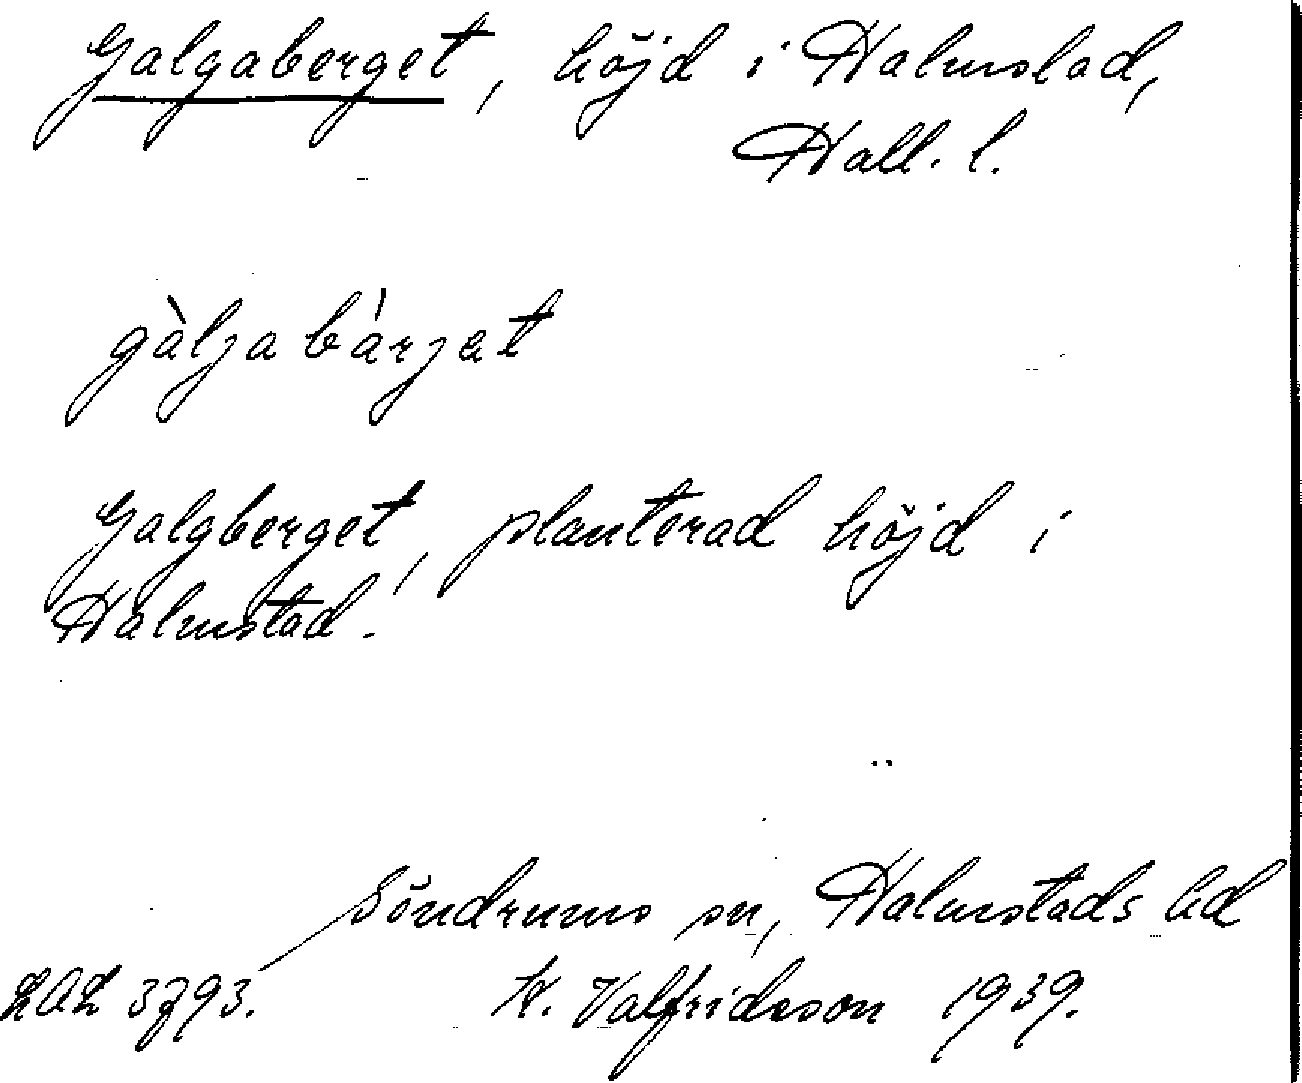 Galgaberget, höjd i Halmstad,
Hall. l.
gàlja bárjat
Galgberget, planterad höjd i
Halmstad.
Söndrums sn, Halmstads hd
LAL 3793. W. Valfridsson 1939.